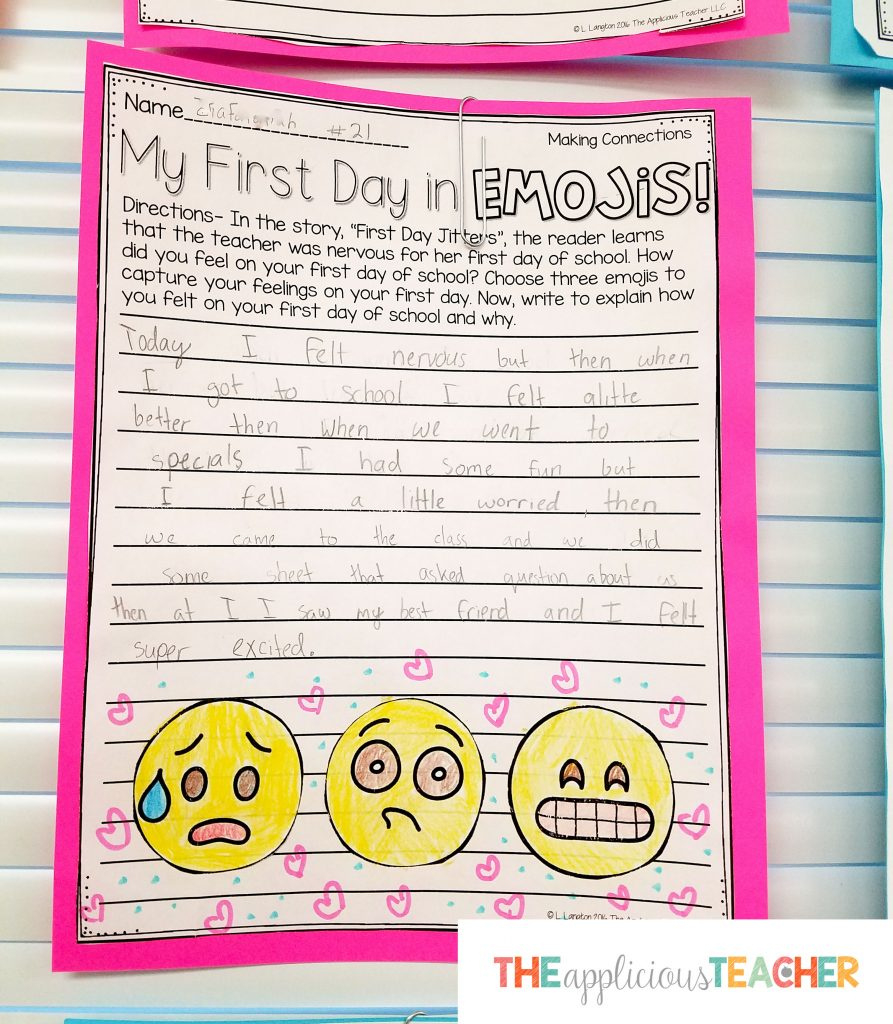 © L. Langton 2016 The Applicious Teacher LLC
Name #21
Making Connections
My First Day in EMOJIS!
Directions- In the story, "First Day Jitters", the reader learns
that the teacher was nervous for her first day of school. How
did you feel on your first day of school? Choose three emojis to
capture your feelings on your first day. Now, write to explain how
you felt on your first day of school and why.
Today I felt nervous but then when
I got to school I felt alitte
better then when we went to
specials I had some fun but
I felt a little worried, then
we came to the class and we did
some sheet that asked question about us
then at I I saw my best friend and I felt
super excited.
© L. Langton 2016 The App
THE applicious TEACHER